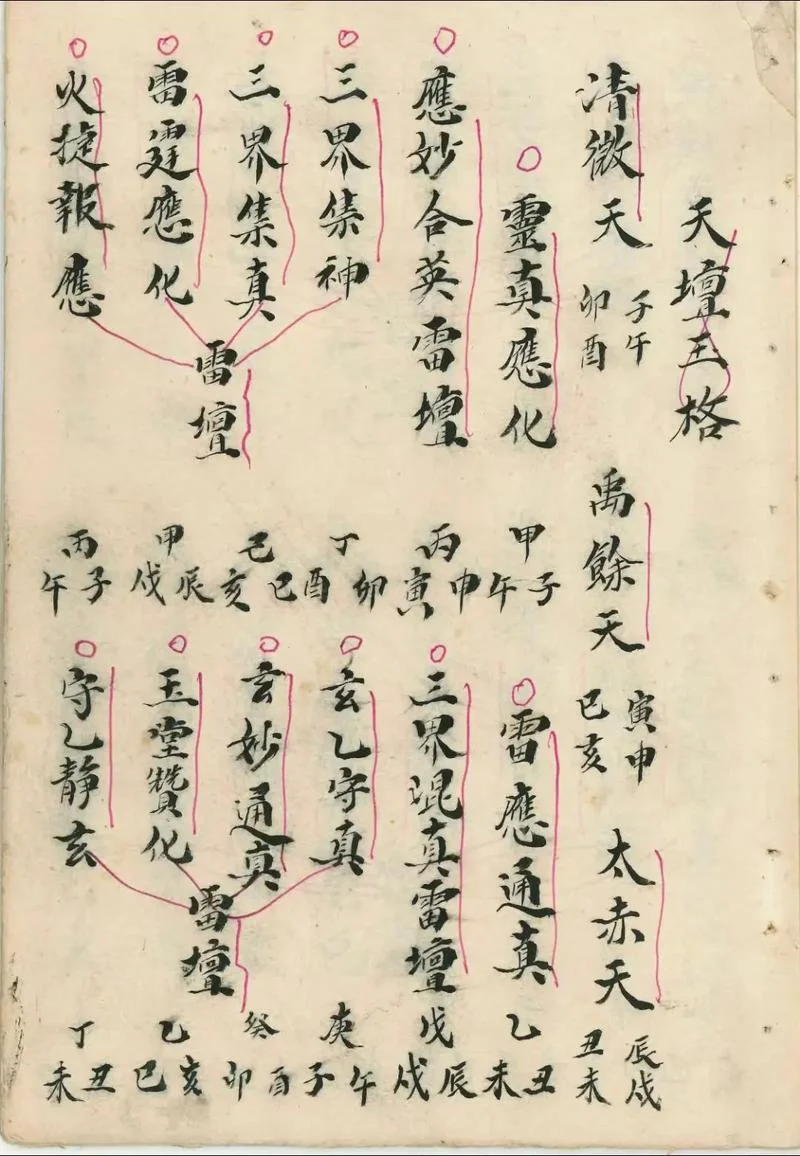 天壇玉格
清微天 子午 卯酉
禹餘天 寅申 巳亥
太赤天 辰戌 丑未
靈真應化
甲 子午
應妙合英雷壇
丙 寅申
三界集神
丁 卯酉
三界集真
己 巳亥
雷霆應化
甲 辰戌
火捷報應
丙 子午
雷壇
雷應通真
乙 丑未
三界混真雷壇
戊 辰戌
玄乙守真
庚 子午
玄妙通真
癸 卯酉
玉堂贊化
乙 巳亥
守乙靜玄
丁 丑未
雷壇